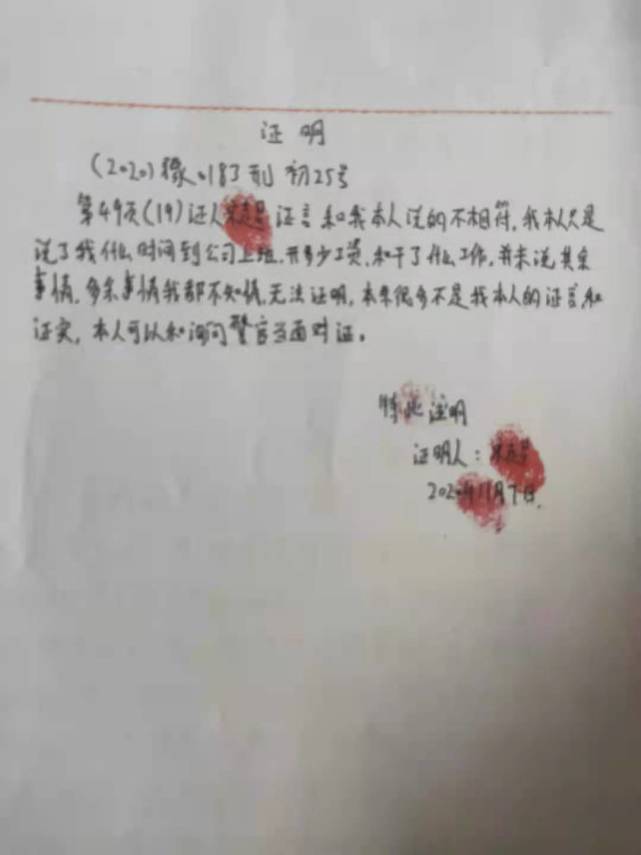 证明
(2020)豫0183刑初25号
第49页(19)证人 证言和我本人说的不相符,我本人只是
说了我什么时间到公司上班,开多少工资,和干了什么工作,并未说其余
事情,多余事情我都不知情,无法证明,本来很多不是我本人的证言和
证实,本人可以和询问警官当面对证。
特此证明
证明人:
2020年11月7日.